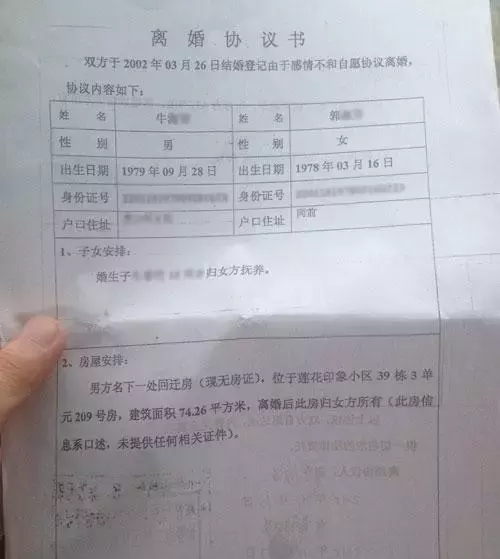 离 婚 协 议 书
双方于 2002 年 03 月 26 日结婚登记由于感情不和自愿协议离婚，
协议内容如下：
姓 名 牛 姓 名 郭
性 别 男 性 别 女
出生日期 1979 年 09 月 28 日 出生日期 1978 年 03 月 16 日
身份证号 身份证号
户口住址 户口住址 同前
1、子女安排：
婚生子 归女方抚养。
2、房屋安排：
男方名下一处回迁房（现无房证），位于莲花印象小区 39 栋 3 单
元 209 号房，建筑面积 74.26 平方米，离婚后此房归女方所有（此房信
息系口述，未提供任何相关证件）。